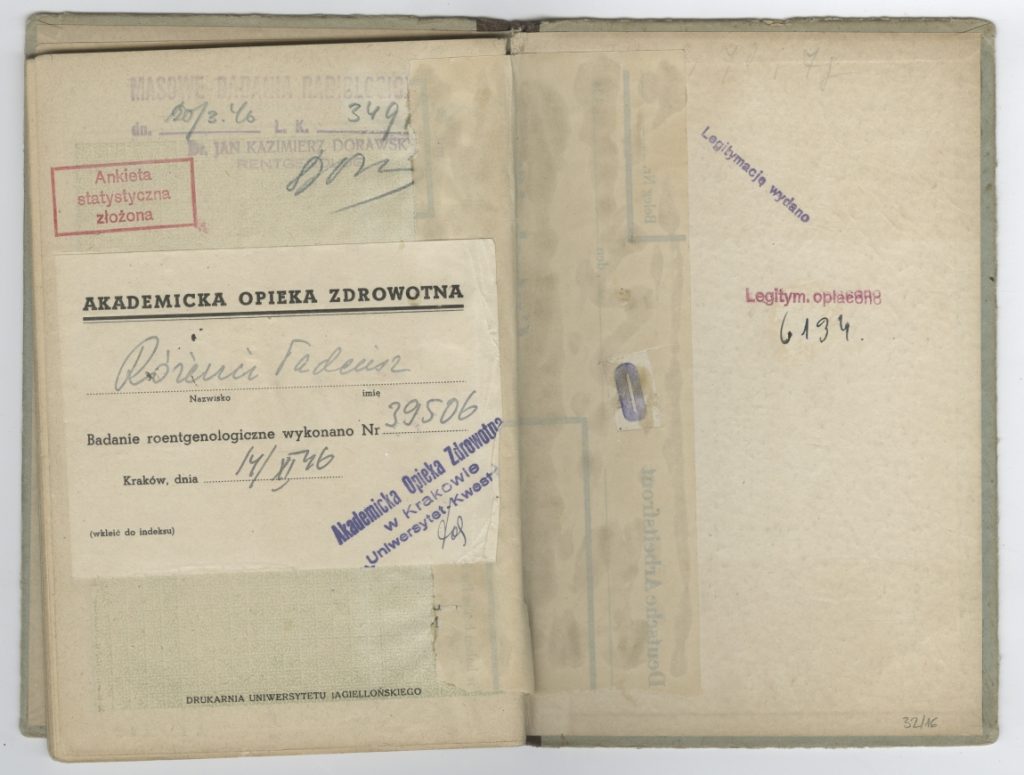 MASOWE BADANIA RADIOLOGICZ
dn. 20/3.46 L. K. 349
Dr. JAN KAZIMIERZ DORAWSK
Ankieta
statystyczna
złożona
AKADEMICKA OPIEKA ZDROWOTNA
Tadeusz
Nazwisko imię
Badanie roentgenologiczne wykonano Nr 39506
Kraków, dnia 14/XI 46
(wkleić do indeksu)
Akademicka Opieka Zdrowotna
w Krakowie
Uniwersytet-Kwest
DRUKARNIA UNIWERSYTETU JAGIELLOŃSKIEGO
Legitymację wydano
Legitym. opłacono
6194.
Beleg Nr.
den
Deutsche Arbeitsfront
32/16